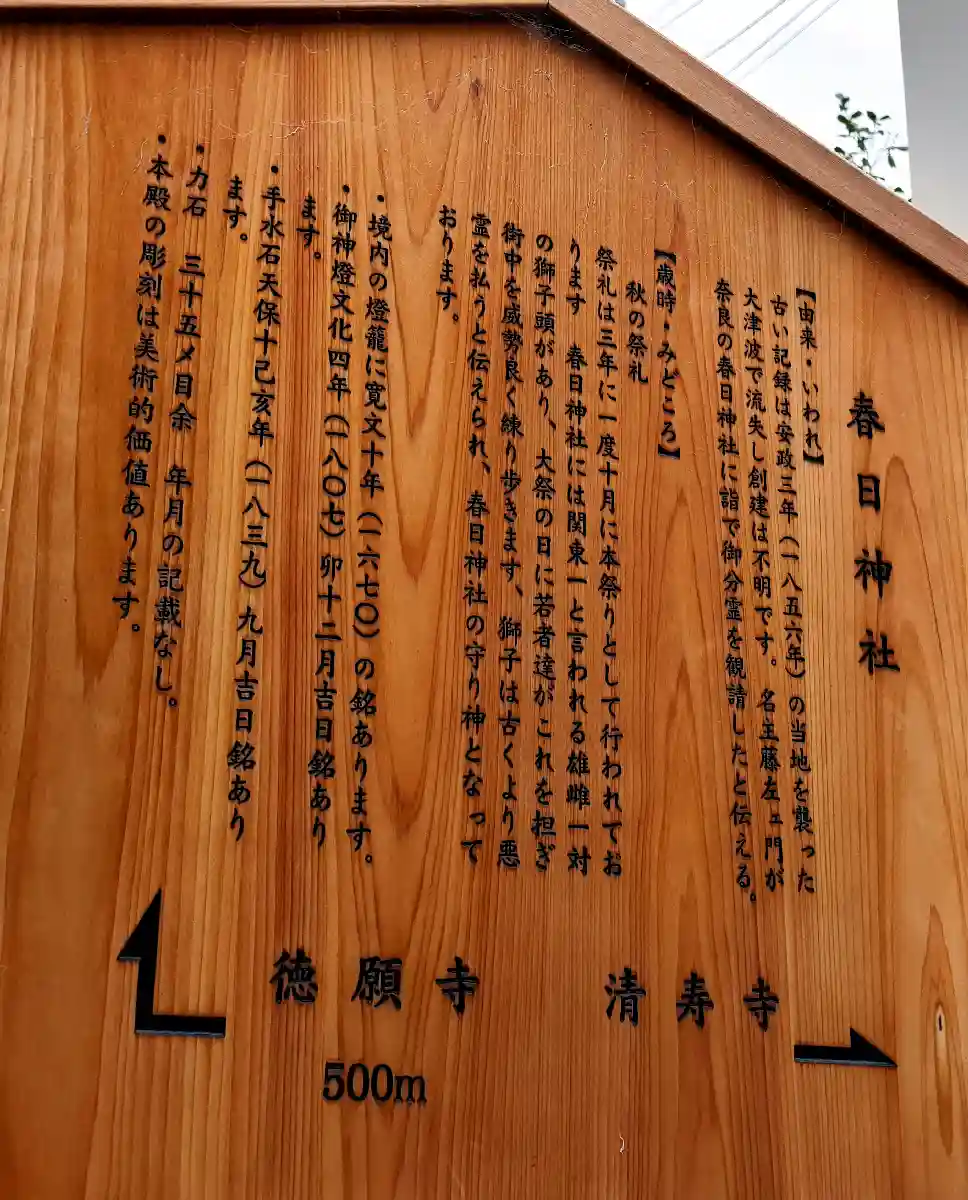 春日神社
【由来・いわれ】
古い記録は安政三年（一八五六年）の当地を襲った
大津波で流失し創建は不明です。名主藤左ェ門が
奈良の春日神社に詣で御分霊を観請したと伝える。
【歳時・みどころ】
秋の祭礼
祭礼は三年に一度十月に本祭りとして行われてお
ります　春日神社には関東一と言われる雄雌一対
の獅子頭があり、大祭の日に若者達がこれを担ぎ
街中を威勢良く練り歩きます、獅子は古くより悪
霊を払うと伝えられ、春日神社の守り神となって
おります。
・境内の燈籠に寛文十年（一六七〇）の銘あります。
・御神燈文化四年（一八〇七）卯十二月吉日銘あり
ます。
・手水石天保十己亥年（一八三九）九月吉日銘あり
ます。
・力石　三十五メ目余　年月の記載なし。
・本殿の彫刻は美術的価値あります。
徳願寺
500m
清寿寺